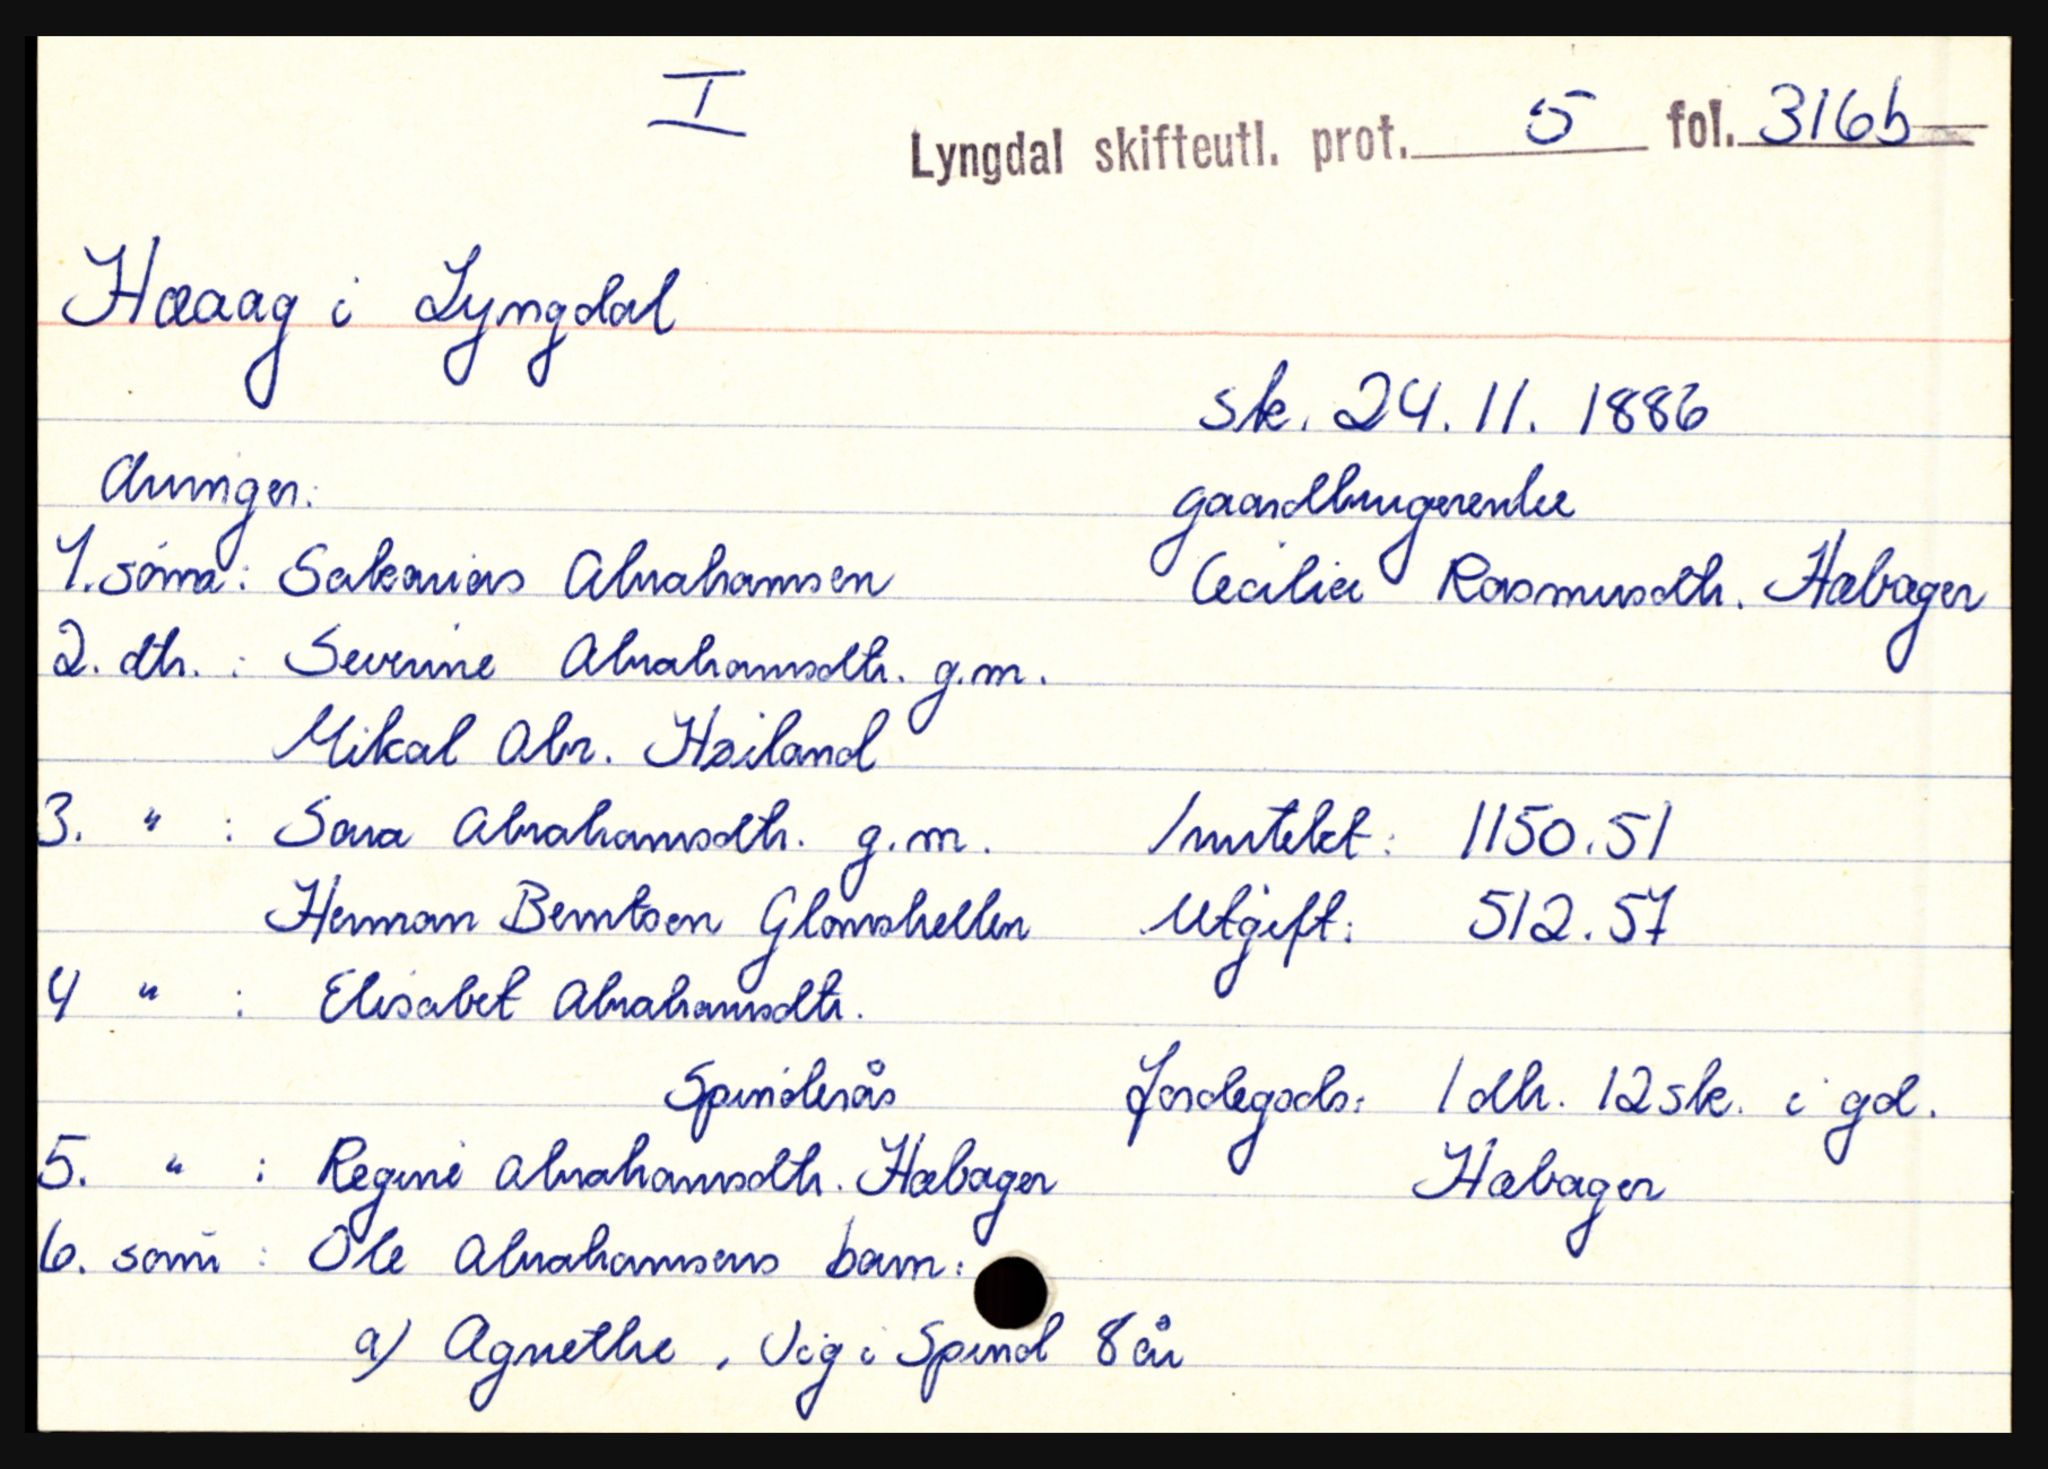 I
Lyngdal skifteutl. prot. 5 fol. 316b
Hæaag i Lyngdal
sk. 24.11.1886
Arvinger:
gaardbrugerenke
1. sønn: Sakarias Abrahamsen
Cecilie Rasmusdtr. Habager
2. dtr. : Severine Abrahamsdtr. g.m.
Mikal Abr. Høiland
3. " : Sara Abrahamsdtr. g.m.
Inntekt: 1150.51
Herman Berntsen Glomshellen
Utgift: 512.57
4 " : Elisabet Abrahamsdtr.
Spinderås
Jordegods: 1 dlr. 12 sk. i gd.
5. " : Regine Abrahamsdtr. Habager
Habager
6. sønn : Ole Abrahamsens barn:
a) Agnethe, Vig i Spind 8 år